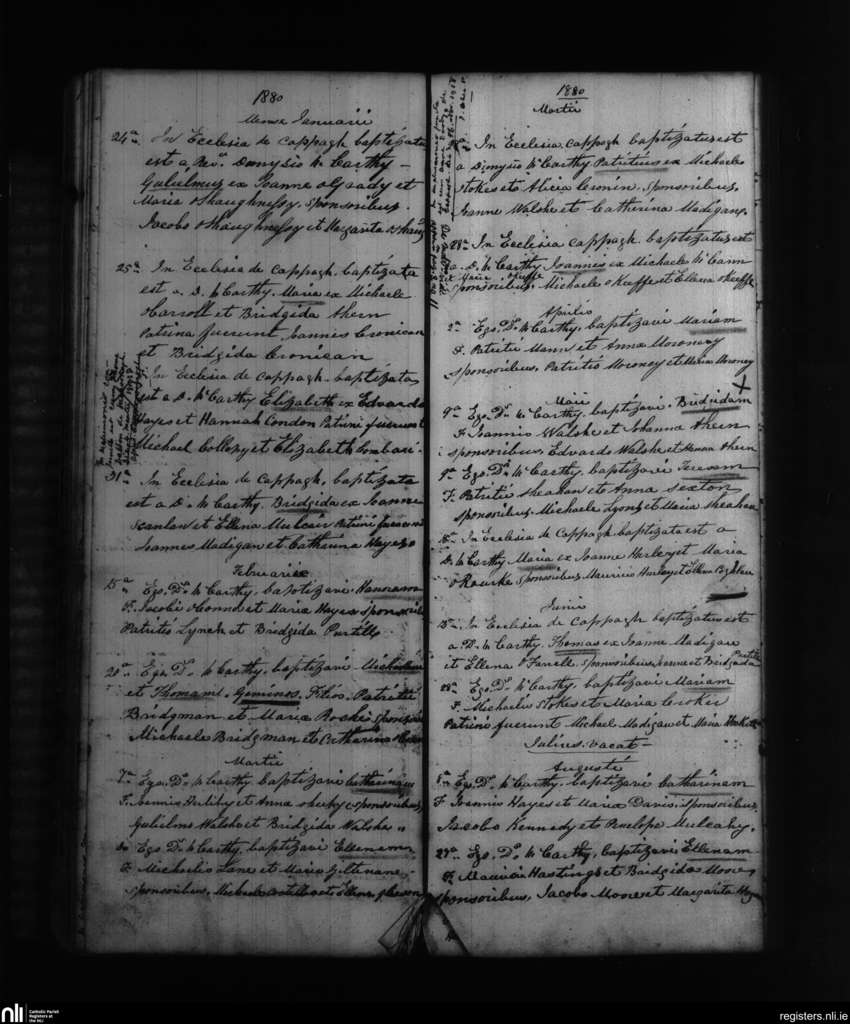 1880
Mense Januarii
24a In Ecclesia de Cappagh baptizatus
est a Revo. Dionysio Mc Carthy
Gulielmus ex Joanne O'Grady et
Maria O'Shaughnessy. Sponsoribus.
Jacobo O'Shaughnessy et Margarita O'Shaug
25a In Ecclesia de Cappagh baptizata
est a D. Mc Carthy. Maria ex Michaele
Carroll et Bridgida Ahern
Patrini fuerunt Joannes Cronican
et Bridgida Cronican
In Ecclesia de Cappagh baptizata
est a D. Mc Carthy Elizabeth ex Edvardo
Hayes et Hannah Condon Patrini fuerunt
Michael Collopy et Elizabeth Lombard.
31a In Ecclesia de Cappagh, baptizata
est a D. Mc Carthy. Bridgida ex Joanne
Scanlan et Ellena Mulcair Patrini fuerunt
Joannes Madigan et Catharina Hayes
Februarii
15a Ego. Ds. Mc Carthy, baptizavi Hannam
F. Jacobi O'Connor et Maria Hayes Sponsorib
Patritio Lynch et Bridgida Purtill
20a Ego Ds. Mc Carthy. baptizavi Michaelem
et Thomam. Geminos, Filios. Patritii
Bridgman et Maria Roche Sponsorib
Michaele Bridgman et Catharina
Martii
7a Ego. Ds. Mc Carthy baptizavi Catharinam
F. Joannis et Anna Sheehy Sponsoribus,
Gulielmo Walsh et Bridgida Walshe
Do Ego Ds. Mc Carthy. baptizavi Ellenam
F. Michaelis Lane et Maria Giltenane
Sponsoribus, Michaele Costelloe et Ellena Gleeson
1880
Martii
In Ecclesia Cappagh baptizatus est
a Dionysio Mc Carthy Patritius ex Michaele
Stokes et Alicia Cronin. Sponsoribus.
Joanne Walshe et Catherina Madigan.
28a In Ecclesia Cappagh baptizatus est
a. D. Mc Carthy Joannis ex Michaele Mc Cann
et Maria O'Keeffe
Sponsoribus. Michaele O'Keeffe et Ellena O'Keeffe
Aprilis
2a Ego. Ds. Mc Carthy, baptizavi Mariam
F. Patritii Mann et Anna Moroney
Sponsoribus. Patritio Moroney et Maria Moroney
Maii
9a Ego. Ds. Mc Carthy. baptizavi. Bridgidam X
F. Joannis Walshe et Johanna Ahern
Sponsoribus. Edvardo Walshe et Hanna Ahern
9a Ego. Ds. Mc Carthy. baptizavi Teresam
F. Patritii Sheahan et Anna Sexton
Sponsoribus. Michaele Lyons et Maria Sheahan
In Ecclesia de Cappagh baptizata est a
D. Mc Carthy Maria ex Joanne Hurley et Maria
O'Rourke Sponsoribus Mauritio Hurley et Ellena
Junii
13a In Ecclesia de Cappagh baptizatus est
a. D. Mc Carthy. Thomas ex Joanne Madigan
et Ellena O'Farrell. Sponsoribus, et Bridgida Purtill
28a Ego. Ds. Mc Carthy baptizavi Mariam
F. Michaelis Stokes et Maria Croker
Patrini fuerunt Michael Madigan et Maria
Julius. vacat
Augusti
5a Ego. Ds. Mc Carthy baptizavi Catharinam
F. Joannis Hayes et Maria Davis. Sponsoribus.
Jacobo Kennedy et Penelope Mulcahy.
27a Ego. Ds. Mc Carthy, baptizavi Ellenam
F. Mauritii Hastings et Bridgida Moore
Sponsoribus, Jacobo Moore et Margarita
nli
Catholic Parish
Registers at
the NLI
registers.nli.ie